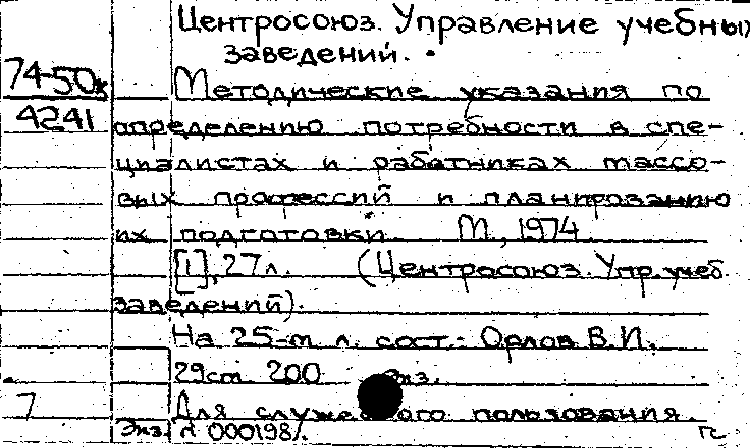 Центросоюз. Управление учебных
заведений.
74-50к
4241
Методические указания по
определению потребности в спе-
циалистах и работниках массо-
вых профессий и планированию
их подготовки. М., 1974.
[1], 27 л. (Центросоюз. Упр. учеб.
заведений).
На 25-м л. сост.: Орлов В.И.
29см. 200 экз.
7
Для служебного пользования.
Экз. № 000198.